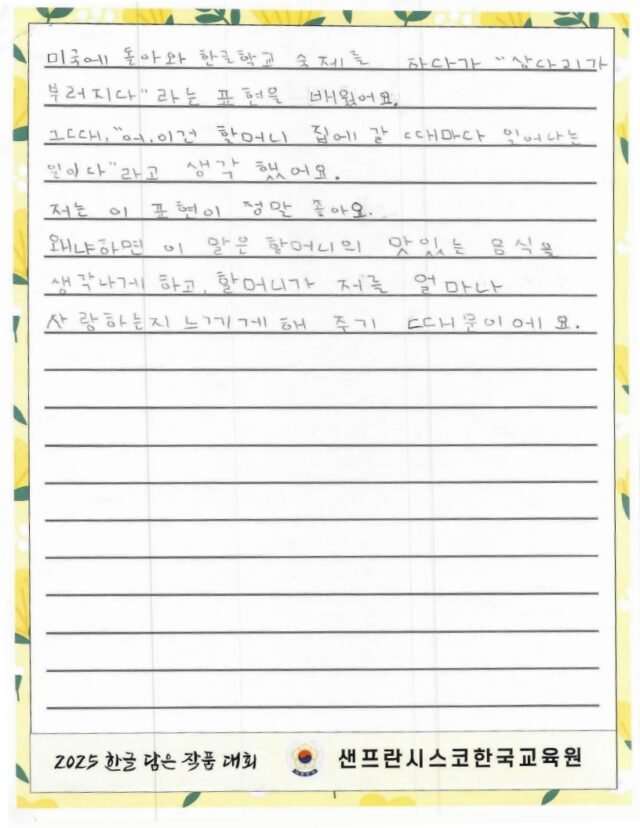 미국에 돌아와 한글학교 숙제를 하다가 "상다리가
부러지다"라는 표현을 배웠어요.
그때, "어, 이건 할머니 집에 갈 때마다 일어나는
일이다"라고 생각 했어요.
저는 이 표현이 정말 좋아요.
왜냐하면 이 말은 할머니의 맛있는 음식을
생각나게 하고, 할머니가 저를 얼마나
사랑하는지 느끼게 해 주기 때문이에요.
2025 한글 담은 작품 대회
샌프란시스코한국교육원